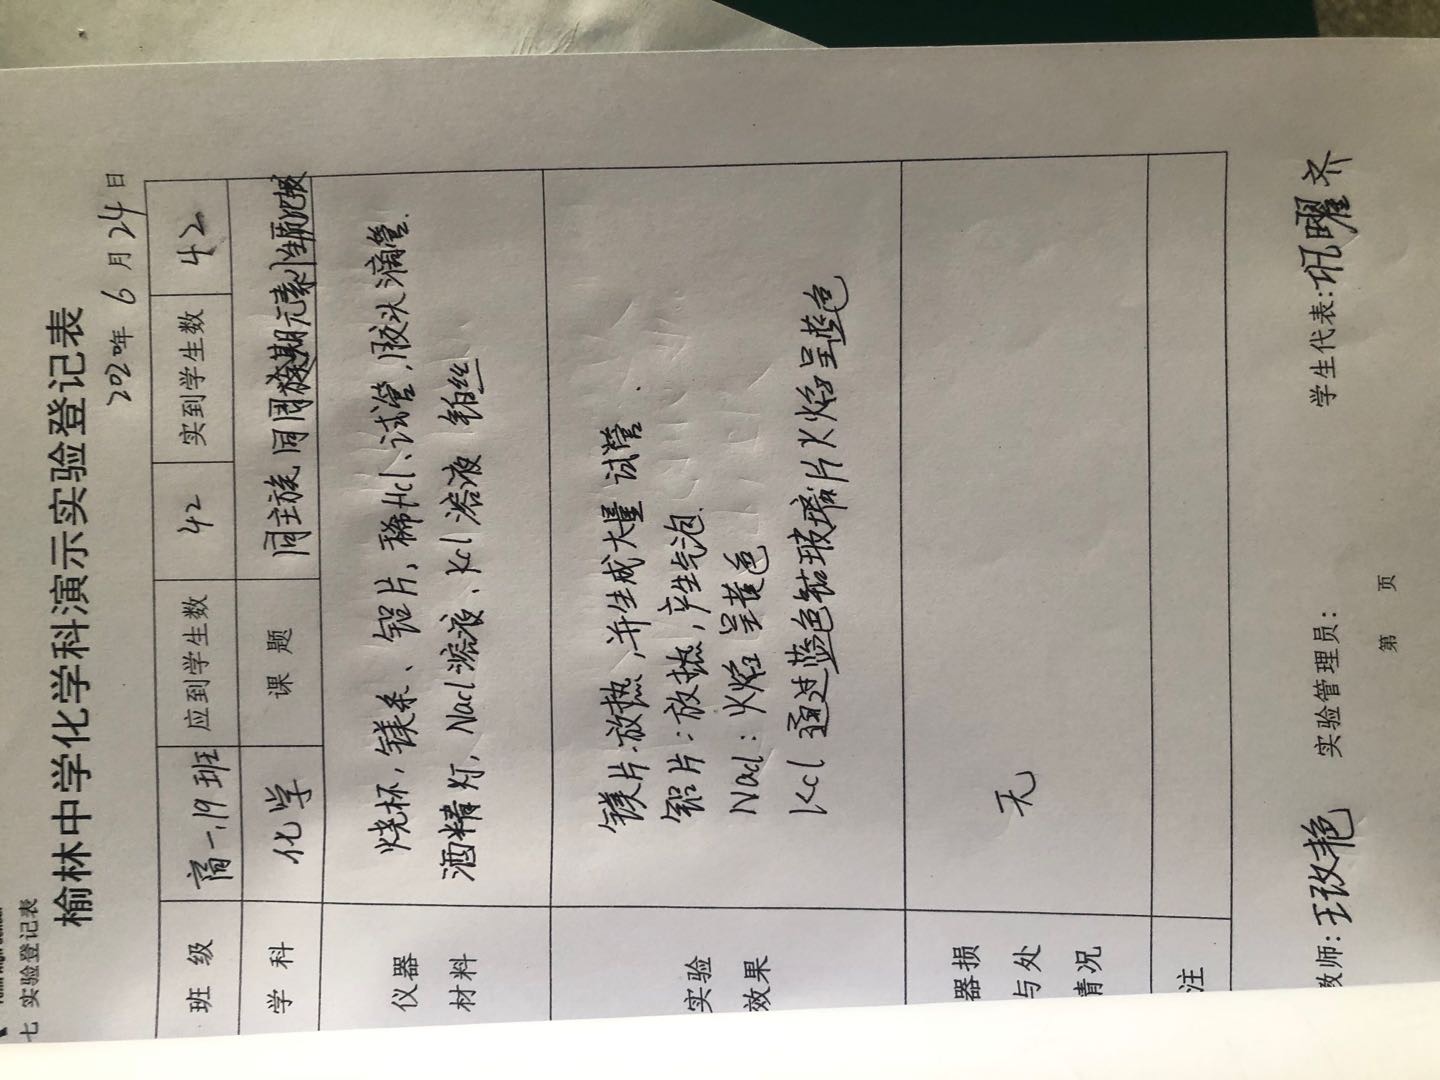 七 实验登记表
榆林中学化学科演示实验登记表
2020年 6 月 24 日
班 级 高一.19班 应到学生数 42 实到学生数 42
学 科 化学 课 题 同主族 同周期元素
仪器 烧杯, 镁条、铝片, 稀Hcl、试管, 胶头滴管.
材料 酒精灯, Nacl溶液、Kcl溶液 铂丝
实验 镁片:放热,并生成大量 试管
效果 铝片:放热,产生气泡.
Nacl:火焰 呈黄色
Kcl 通过蓝色钴玻璃片火焰呈蓝色
器损
与处 无
情况
注
教师:王改艳 实验管理员: 学生代表:巩曜齐
第 页